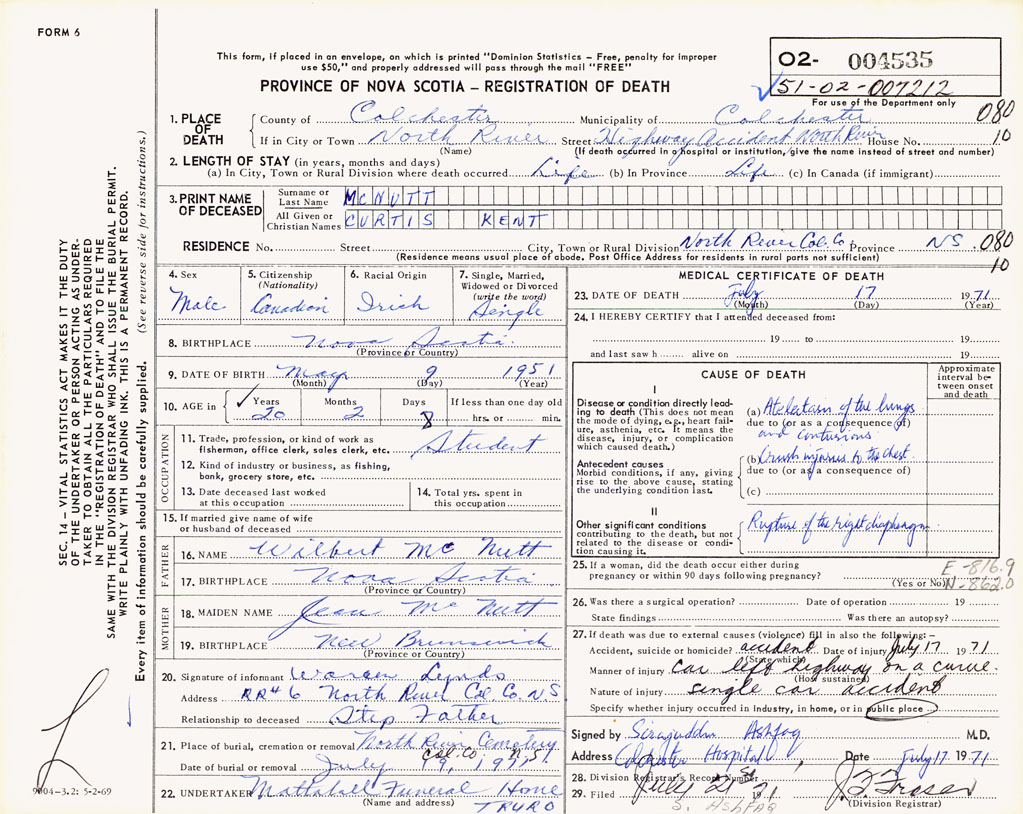 FORM 6
This form, if placed in an envelope, on which is printed "Dominion Statistics – Free, penalty for improper
use $50," and properly addressed will pass through the mail "FREE"
PROVINCE OF NOVA SCOTIA – REGISTRATION OF DEATH
02- 004535
51-02-007212
For use of the Department only
080
10
1. PLACE OF DEATH
County of Colchester Municipality of Colchester
If in City or Town North River Street Highway Accident North River House No.
(Name) (If death occurred in a hospital or institution, give the name instead of street and number)
2. LENGTH OF STAY (in years, months and days)
(a) In City, Town or Rural Division where death occurred Life (b) In Province Life (c) In Canada (if immigrant)
3. PRINT NAME OF DECEASED
Surname or Last Name MCNUTT
All Given or Christian Names CURTIS KENT
RESIDENCE No. Street City, Town or Rural Division North River Col. Co. Province NS 080
(Residence means usual place of abode. Post Office Address for residents in rural parts not sufficient) 10
4. Sex Male
5. Citizenship (Nationality) Canadian
6. Racial Origin Irish
7. Single, Married, Widowed or Divorced (write the word) Single
8. BIRTHPLACE Nova Scotia
(Province or Country)
9. DATE OF BIRTH May 9 1951
(Month) (Day) (Year)
10. AGE in Years 20 Months 2 Days 8 If less than one day old hrs. or min.
OCCUPATION
11. Trade, profession, or kind of work as
fisherman, office clerk, sales clerk, etc. Student
12. Kind of industry or business, as fishing,
bank, grocery store, etc.
13. Date deceased last worked
at this occupation
14. Total yrs. spent in
this occupation
15. If married give name of wife
or husband of deceased
FATHER
16. NAME Wilbert McNutt
17. BIRTHPLACE Nova Scotia
(Province or Country)
MOTHER
18. MAIDEN NAME Jean McNutt
19. BIRTHPLACE New Brunswick
(Province or Country)
20. Signature of informant Warren Lynds
Address RR#6 North River Col Co. NS
Relationship to deceased Step Father
21. Place of burial, cremation or removal North River Cemetery
Col. Co. N.S.
Date of burial or removal July 19, 1971
22. UNDERTAKER Mattatall Funeral Home
(Name and address) TRURO
MEDICAL CERTIFICATE OF DEATH
23. DATE OF DEATH July 17 1971
(Month) (Day) (Year)
24. I HEREBY CERTIFY that I attended deceased from:
19 to 19
and last saw h alive on 19
CAUSE OF DEATH
Approximate interval between onset and death
I
Disease or condition directly leading to death (This does not mean
the mode of dying, e.g., heart failure, asthenia, etc. It means the
disease, injury, or complication
which caused death.)
(a) of the lungs
due to (or as a consequence of)
and contusions
Antecedent causes
Morbid conditions, if any, giving
rise to the above cause, stating
the underlying condition last.
(b) Crush injuries to the chest.
due to (or as a consequence of)
(c)
II
Other significant conditions
contributing to the death, but not
related to the disease or condition causing it.
Rupture of the right diaphragm
25. If a woman, did the death occur either during
pregnancy or within 90 days following pregnancy?
(Yes or No)
E-816.9
N-862.0
26. Was there a surgical operation? Date of operation 19
State findings Was there an autopsy?
27. If death was due to external causes (violence) fill in also the following: –
Accident, suicide or homicide? accident Date of injury July 17 1971
(State which)
Manner of injury car left highway on a curve.
(How sustained)
Nature of injury single car accident
Specify whether injury occurred in industry, in home, or in public place
Signed by Sirajuddin Ashfaq M.D.
Address Colchester Hospital Date July 17 1971
28. Division Registrar's Record Number
29. Filed July 21st 1971 J. F. Fraser
(Division Registrar)
S. ASHFAQ
SEC. 14 – VITAL STATISTICS ACT MAKES IT THE DUTY
OF THE UNDERTAKER OR PERSON ACTING AS UNDER-
TAKER TO OBTAIN ALL THE PARTICULARS REQUIRED
IN THE "REGISTRATION OF DEATH" AND TO FILE THE
SAME WITH THE DIVISION REGISTRAR WHO SHALL ISSUE THE BURIAL PERMIT.
WRITE PLAINLY WITH UNFADING INK. THIS IS A PERMANENT RECORD.
Every item of information should be carefully supplied. (See reverse side for instructions.)
9004-3.2: 5-2-69